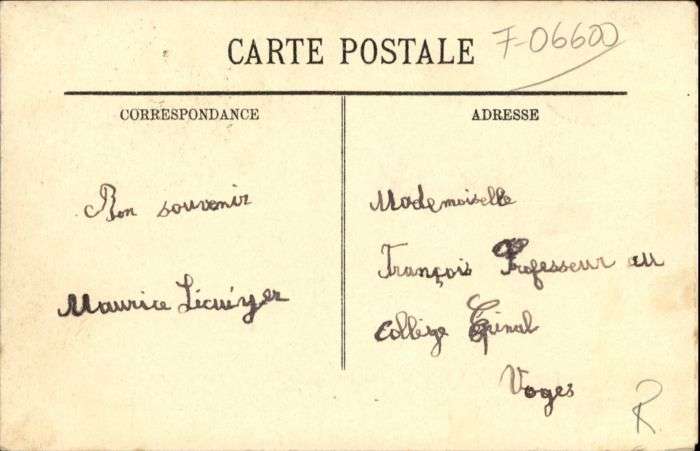 CARTE POSTALE
F-06600
CORRESPONDANCE
ADRESSE
Bon souvenir
Maurice Lécuÿer
Mademoiselle
François Professeur au
Collège Épinal
Voges
R